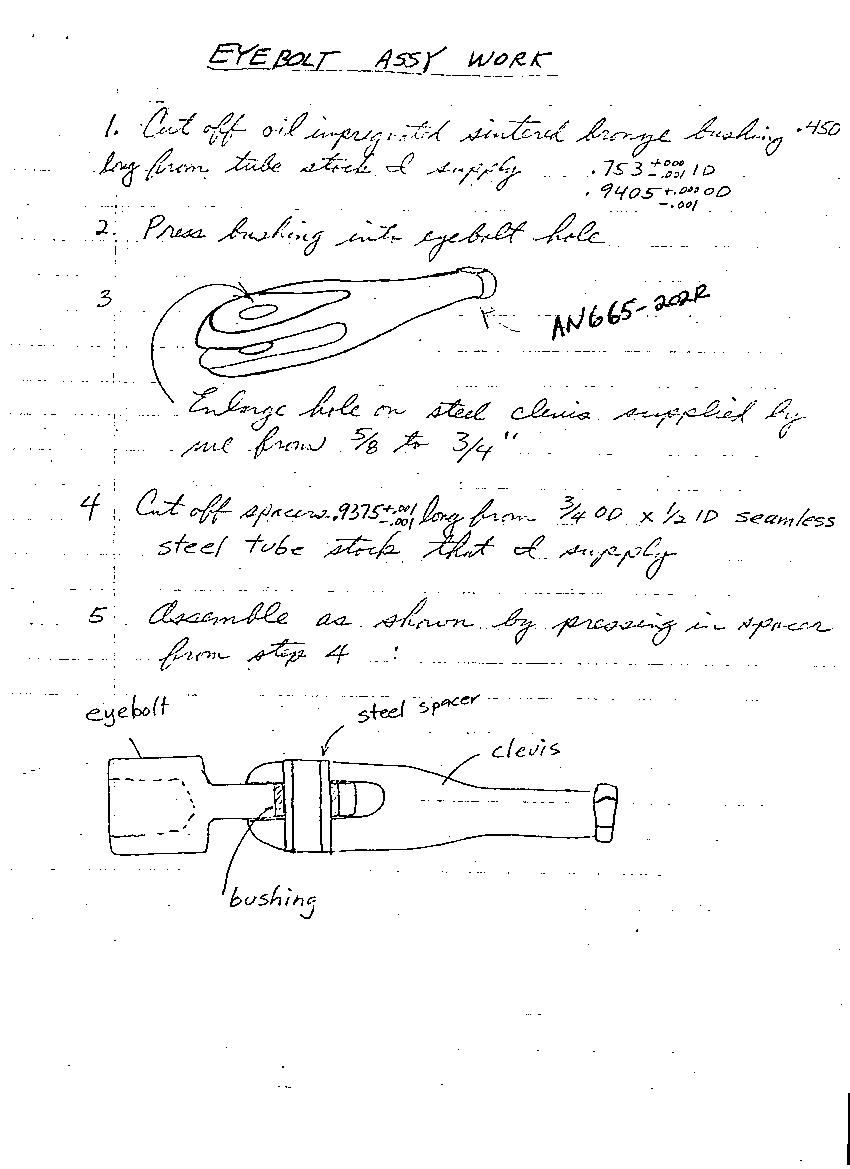 EYEBOLT ASSY WORK
1. Cut off oil impregnated sintered bronze bushing .450
long from tube stock I supply .753 +.000 -.001 ID
.9405 +.000 -.001 OD
2. Press bushing into eyebolt hole
3
AN665-202R
Enlarge hole on steel clevis supplied by
me from 5/8 to 3/4"
4 Cut off spacers .9375 +.001 -.001 long from 3/4 OD x 1/2 ID seamless
steel tube stock that I supply
5 Assemble as shown by pressing in spacer
from step 4 :
eyebolt
steel spacer
clevis
bushing